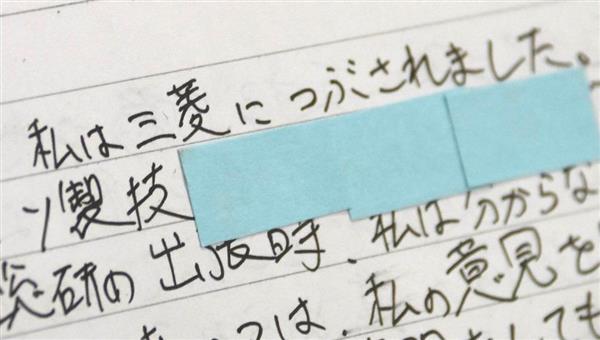 私は三菱につぶされました。
製技
研の出張時、私は分からな
は、私の意見を
ても